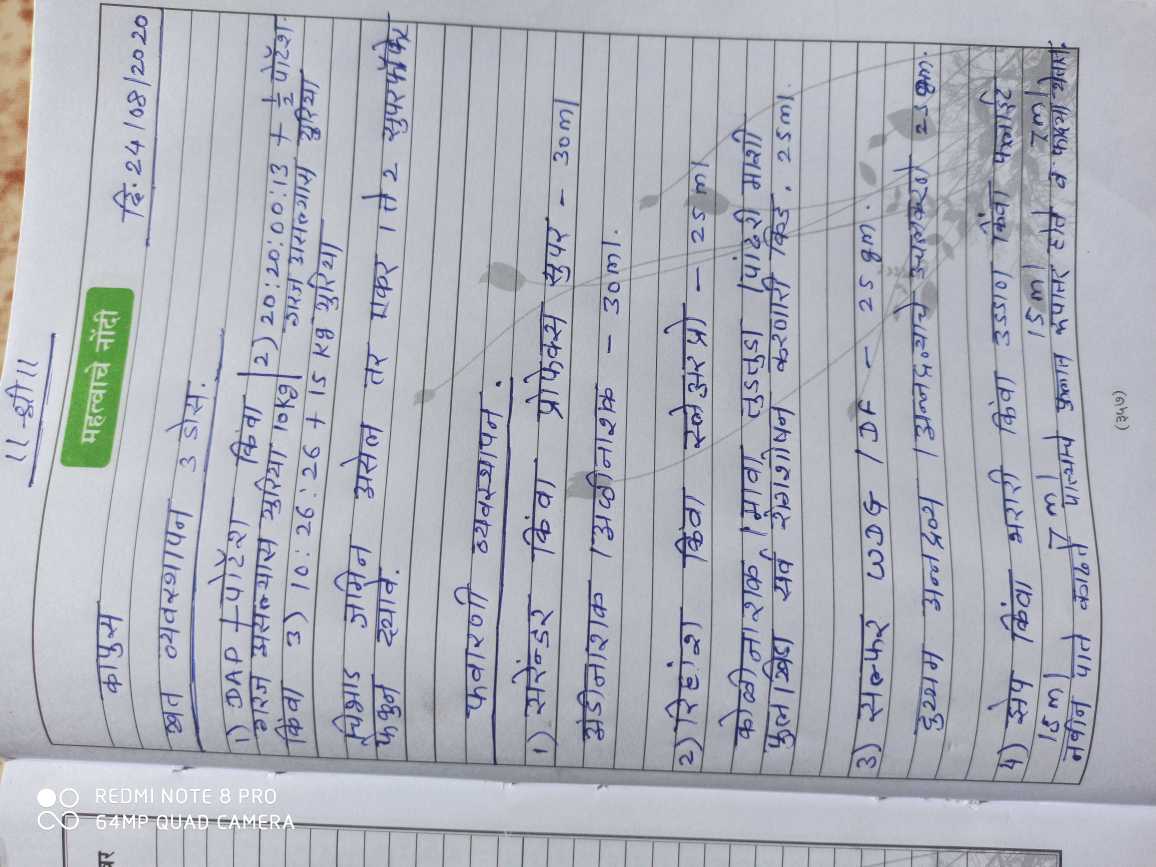 ।।-श्री।।
महत्वाचे नोंदी
दि: 24/08/2020
कापुस
खत व्यवस्थापन 3 डोस.
1) DAP + पोटॅश किंवा | 2) 20:20:00:13 + ½ पोटॅश.
गरज असल्यास युरिया 10kg | गरज असल्यास युरिया
किंवा 3) 10:26:26 + 15 kg युरिया
जमिन असेल तर एकर 1 ते 2 सुपरफॉस्फेट
फेकुन द्यावे.
फवारणी व्यवस्थापन.
1) सरेंन्डर किंवा प्रोफेक्स सुपर - 30ml
अंडीनाशक / अळीनाशक - 30ml.
2) रिहांश किंवा स्लेअरप्रो - 25 ml
कोळीनाशक / मावा तुडतुडा / पांढरी माशी
फुलकिडा सर्व रसशोषन करणारी किड. 25ml.
3) सल्फर WDG / DF - 25 gm.
दुय्यम अन्नद्रव्य / अन्नद्रव्याचे 25 gm.
4) झेप किंवा भरारी किंवा उडाण किंवा फ्लाईट
15ml 7ml 15ml 7ml
नवीन पाते काढते / पात्याचे फुलात रूपांतर होते व फांद्या येतात.
(३५७)
REDMI NOTE 8 PRO
64MP QUAD CAMERA